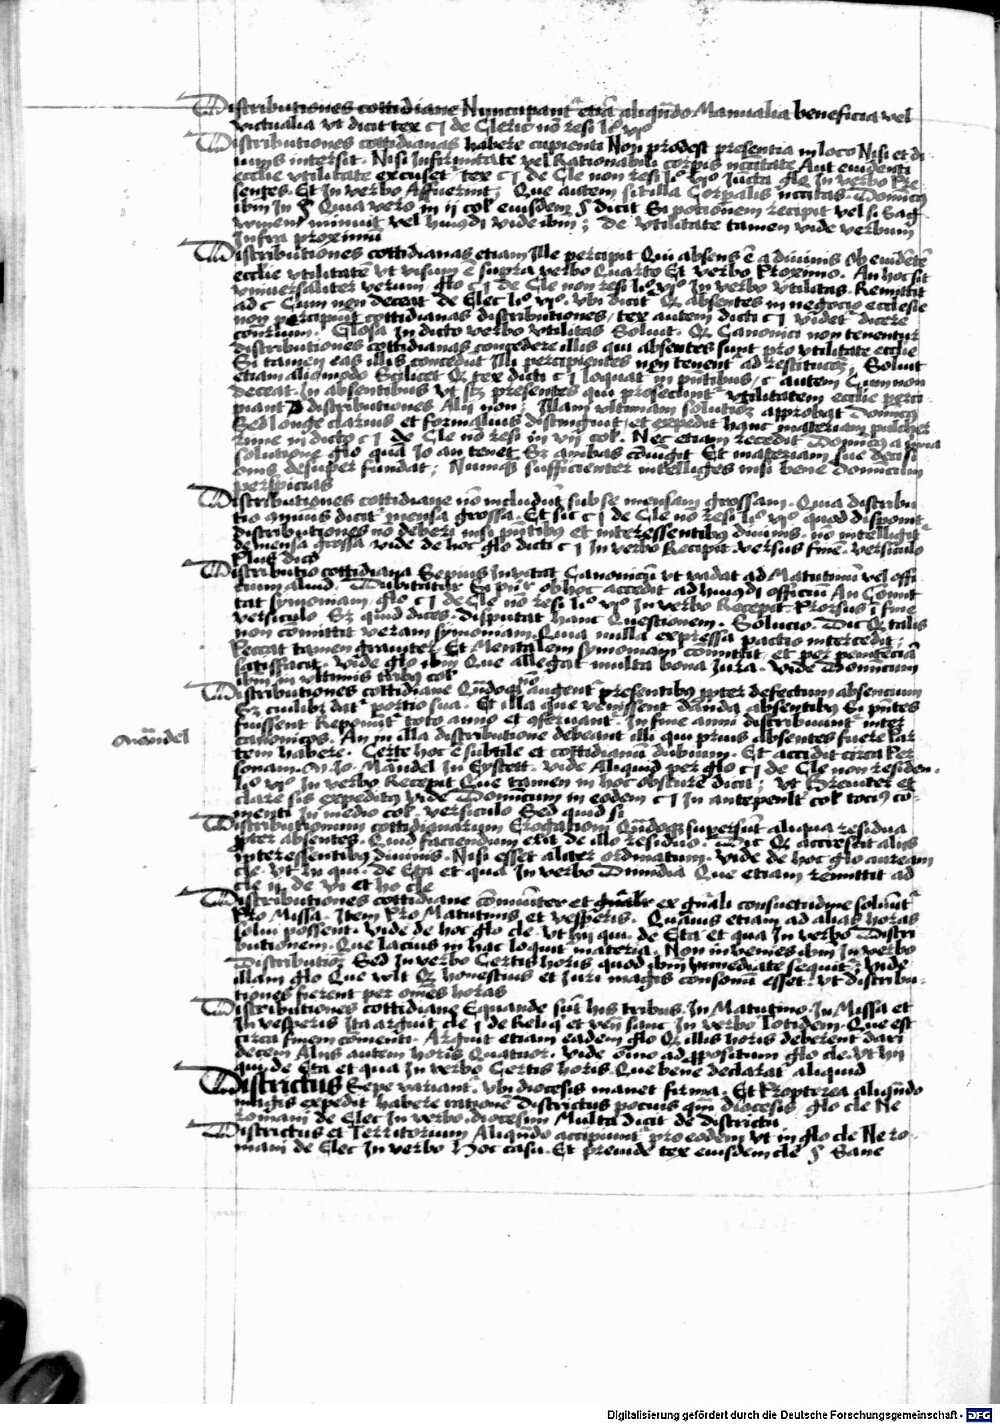 Distributiones cottidiane Nuncupant᷑ etiā aliqn̄do Manualia beneficia vel
victualia vt dicit tex c j de Cleric nō resi lı° vj°
Distributiones cottidianas habere cupienti Non prodest presentia in loco Nisi et di
uinis intersit. Nisi Infirmitate vel Rationabili corpīs nc̄citate Aut euidenti
ecclie vtilitate excuset᷑ tex c j de Cle non resi lı° vj° Iuncta glo In verbo Pre
sentes. Et In verbo Affuerint; Que autem sit illa Corpalis nc̄citas. Dominicꝰ
ibm In § Qui vero in ij col eiusdem § dicit Si potionem recipit vel si Sag
winem minuit vel huiꝰdi vide ibm; de vtilitate tamen vide verbum
Infra proximū
Distributiones cottidianas etiam Ille percipit Qui absens ē a diuinis ob euidētē
ecclie vtilitatē vt visum ē supra verbo Quarto Et verbo Proximo. An hoc sit
vniuersaliter verum, glo c j de Cle non resi lı° vj° In verbo vtilitas. Remittit
ad c Cum non deceat de Elec lı° vj°. vbi dicit Qꝫ absentes in negocio ecclesie
non percipiunt cottidianas distributiones, tex autem dicti c j videt᷑ dicere
contrium. Glosa In dicto verbo vtilitas Soluit. Qꝫ Canonici non tenentur
distributiones cottidianas concedere illis qui absentes sunt pro vtilitate ecclie
Si tamen eas illis concedut Illi percipientes non tenent᷑ ad restitucōꝫ, Soluit
etiam alio modo Scilicet Qꝫ tex dicti c j loquat᷑ in pn̄tibus, c autem Cum non
deceat In absentibus vt sꝫ presentes qui prosecunt᷑ vtilitatem ecclie perci
piant distributiones Alij non; Illam vltimam solutiōꝫ approbat Dominicꝰ
Sed longe clarius et formalius distinguit, et expedit hanc materiam pulcher
rime in dicto c j de Cle nō resi in vij col. Nec etiam recedit Dominicꝰ a prima
solutione glo quā Jo an tenet Sꝫ ambas cōiūgit Et materiam sue decisi
onis desuper fundat; Numqꝫ sufficienter intelliges nisi bene Dominicum
perspicias
Distributiones cottidiane nō includūt᷑ sub se mensam grossam. Quia distribu
tio annuus dicit᷑ mensa grossa. Et sic c j de Cle nō resi lı° vj° quod disponit᷑
distributiones nō deberi nisi pn̄tibꝰ et interessentibꝰ diuinis. nō intelligit᷑
de mensa grossa vide de hoc glo dicti c j In verbo Recipit versus finē. versiculo
Plus dico
Distributio cottidiana Sepius Inuitat Canonicū vt vadat ad Matutinū vel offi
cium aliud. Dubitatur Si pn̄r ob hoc accedit ad huiꝰdi officiū An Cōmit
tat symoniam, glo c j de Cle nō resi lı° vj° In verbo Recepit. Prorsus ī fine
versiculo Sꝫ quid dices. disputat hanc Questionem. Solucio. Dic Qꝫ talis
non cōmittit veram symoniam. Quia nulla expressa pactio intercedit;
Peccat tamen grauiter Et Mentalem symoniam cōmittit, et per penitēciā
satisfacit. vide glo ibm Que allegat multa bona Iura. Vide Dominicum
ibm in vltimis tribꝰ col
Distributiones cottidiane Qn̄doqꝫ nō augent᷑ presentibꝰ ꝓpter defectum absencium
Sꝫ cuilibꝫ dat᷑ portio sua. Et illa que venissent danda absentibꝰ Si pn̄tes
fuissent Reponunt᷑ toto anno et cōseruant᷑. In fine anni distribuunt᷑ inter
canonicos. An in illa distributione debeant illi qui prius absentes fuere Par
Mandel
tem habere. Certe hoc ē subtile et cottidianum dubium. Et accidit circa Per
sonam M. Jo. Mandel In Eystett. vide Aliquid per glo c j de Cle non residen.
lı° vj° In verbo Recepit Que tamen in hoc obscure dicit; vt Breuiter et
clare sis expeditꝰ vide Dominicum in eodem c j In antepenlt col tocꝰ co-
menti In medio col. versiculo Sed quid si
Distributionum cottidianarum Erogationū Qn̄doqꝫ supersūt aliqua residua
ꝓpter absentes. Quid faciendum erit de illo residuo. Dic Qꝫ accrescit alijs
interessentibꝰ diuinis. Nisi esset aliter ordinatum. Vide de hoc glo auream
cle. Vt hij qui. de Eta et qua In verbo Dimidia Que etiam remittit ad
cle ij de vi et ho cle
Distributiones cottidiane cōmuniter et gn̄alr ex gn̄ali consuetudine soluūt᷑
Pro Missa. Item Pro Matutinis et vesperis. Quāuis etiam ad alias horas
solui possent. Vide de hoc glo cle. Vt hij qui. de Eta et qua In verbo Distri
butionem. Que lacius in hac loquit᷑ materia. Non inuenies ibm In verbo
Distributiōꝫ Sed In verbo Certis horis quod ibm immediate sequit᷑; vide
illam glo Que vult Qꝫ honestius et Iuri magis consonū esset. vt distribu-
tiones fierent per omēs horas
Distributiones cottidiane Equande sūt his tribus. In Matutino. In Missa et
In vesperis Ita arguit cle j de Reliq et ven sanc In verbo Totidem. Que est
circa finem cōmenti. Arguit etiam eadem glo Qꝫ illis horis deberent dari
decem Alijs autem horis Quatuor. Vide oīno ad ꝓpositum glo cle. Vt hij
qui. de Eta et qua In verbo Certis horis. Que bene declarat aliquid
Districtus Sepe variant᷑. Vbi diocesis manet firma. Et Propterea aliqn̄do
magis expedit habere rationē districtus pocius qm̄ diocesis. glo cle Ne
romani de Elec In verbo. diocesim Multa dicit de districtu
Districtus et Territorium Aliqn̄do accipiunt᷑ pro eodem vt in glo cle Ne ro-
mani de Elec In verbo Hoc casu. Et preuide tex eiusdem cle § Sane
Digitalisierung gefördert durch die Deutsche Forschungsgemeinschaft - DFG